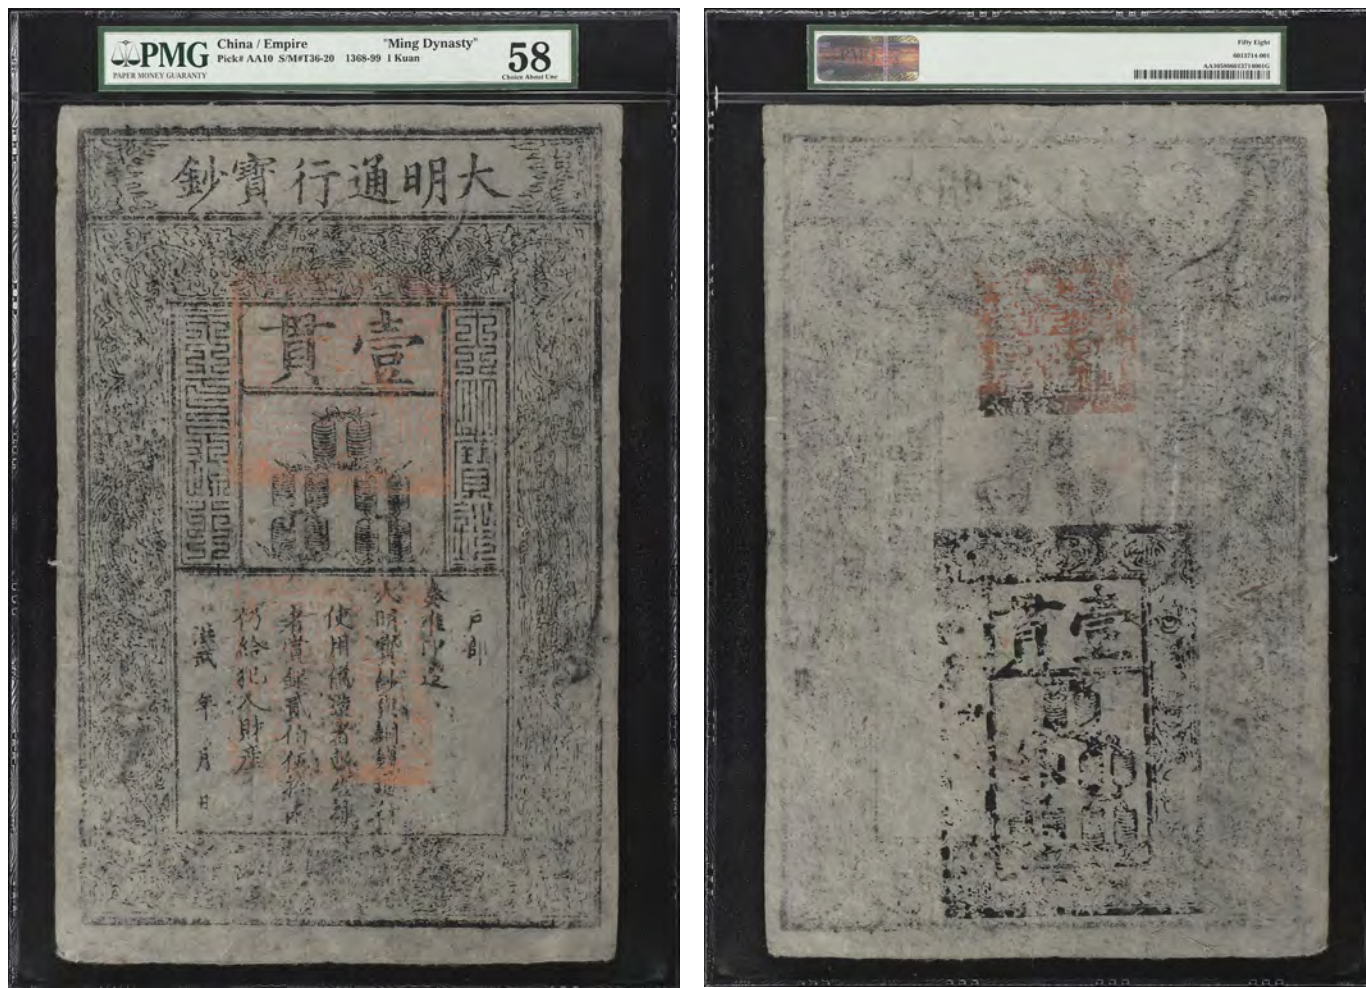 PMG
PAPER MONEY GUARANTY
China / Empire "Ming Dynasty"
Pick# AA10 S/M#T36-20 1368-99 1 Kuan
58
Choice About Unc
大明通行寶鈔
壹貫
大明寶鈔
天下通行
戶部
奏准印造
大明寶鈔與銅錢通行
使用偽造者斬告捕
者賞銀貳伯伍拾兩
仍給犯人財產
洪武 年 月 日
PMG
Fifty Eight
6013714-001
壹貫